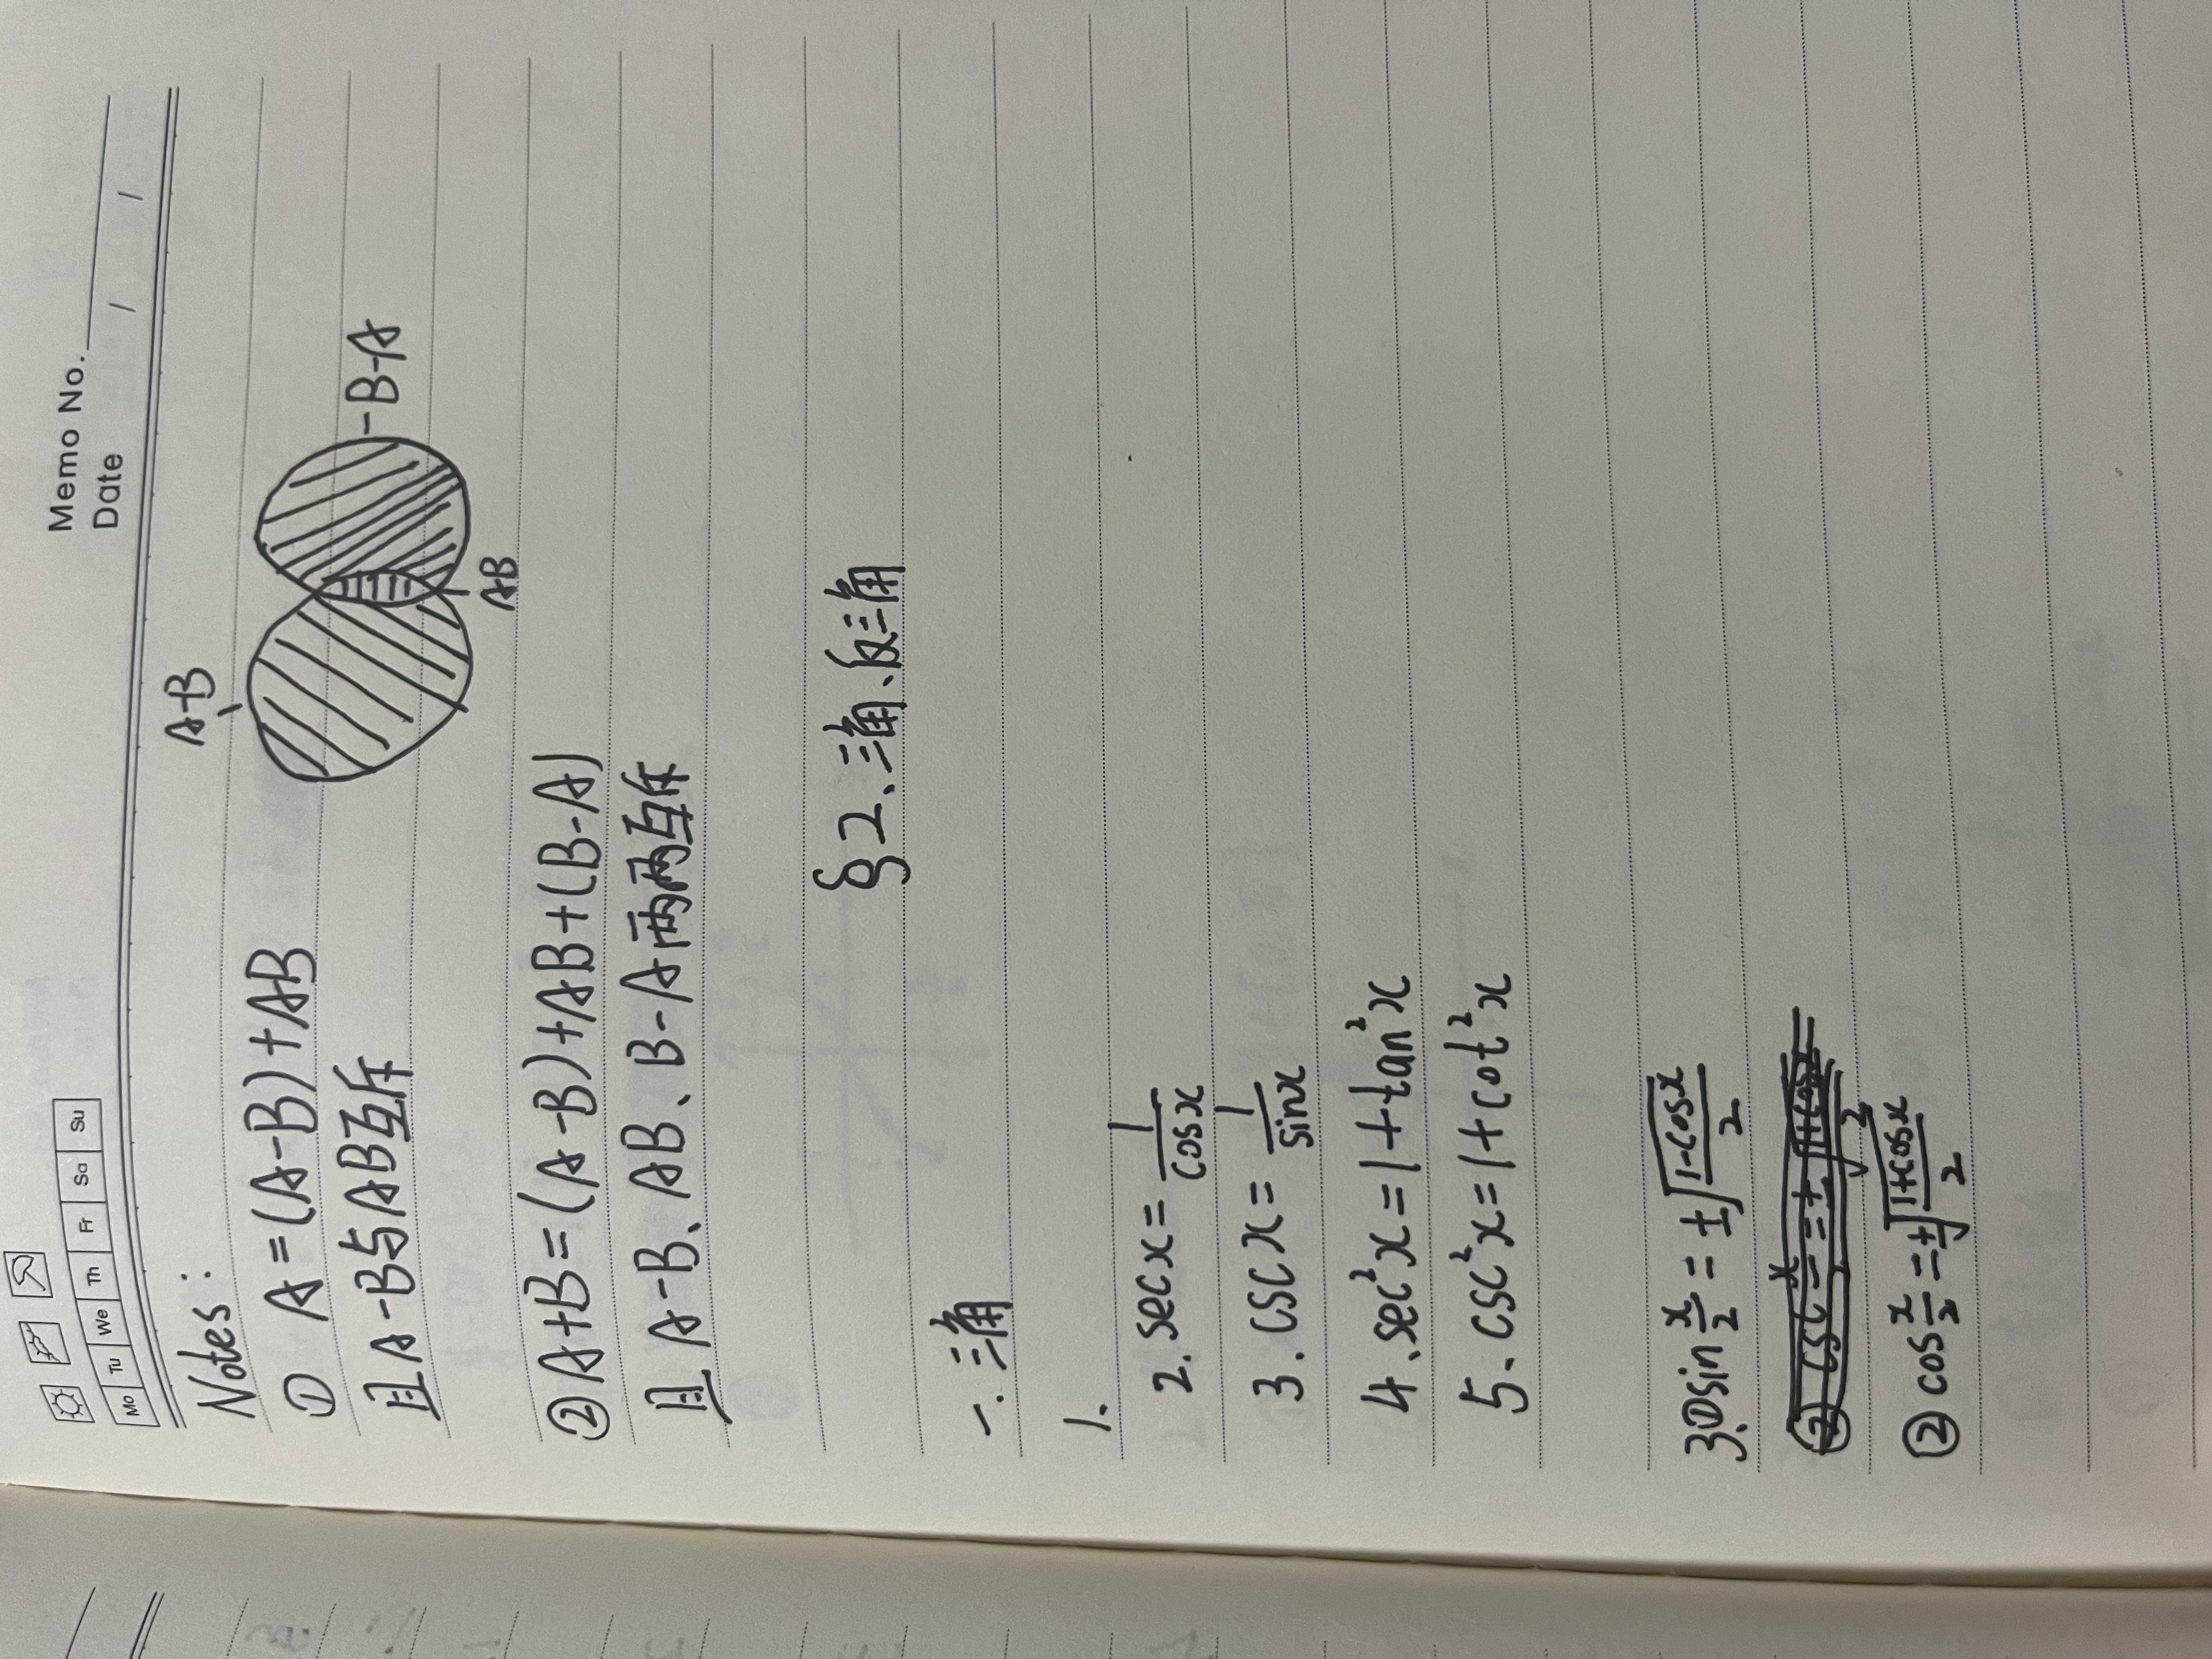 Memo No.
Mo Tu We Th Fr Sa Su
Date / /
Notes:
① A=(A-B)+AB
且A-B与AB互斥
A-B
B-A
AB
②A+B=(A-B)+AB+(B-A)
且A-B、AB、B-A两两互斥
§2、三角、反三角
一. 三角
1.
2. sec x = 1/cos x
3. csc x = 1/sin x
4、sec²x = 1+tan²x
5、csc²x = 1+cot²x
3.①sin x/2 = ±√(1-cosx)/2
②cos x/2 = ±√(1+cosx)/2